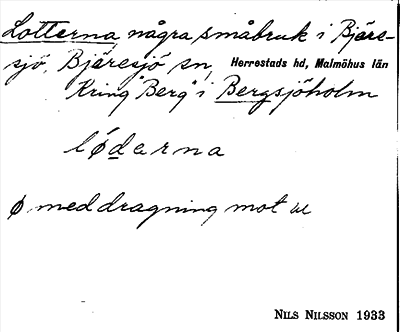 Lotterna, några småbruk i Bjäre-
sjö, Bjäresjö sn, Herrestads hd, Malmöhus län
Kring "Berg" i Bergsjöholm
lǿderna
ø, med dragning mot œ
NILS NILSSON 1933